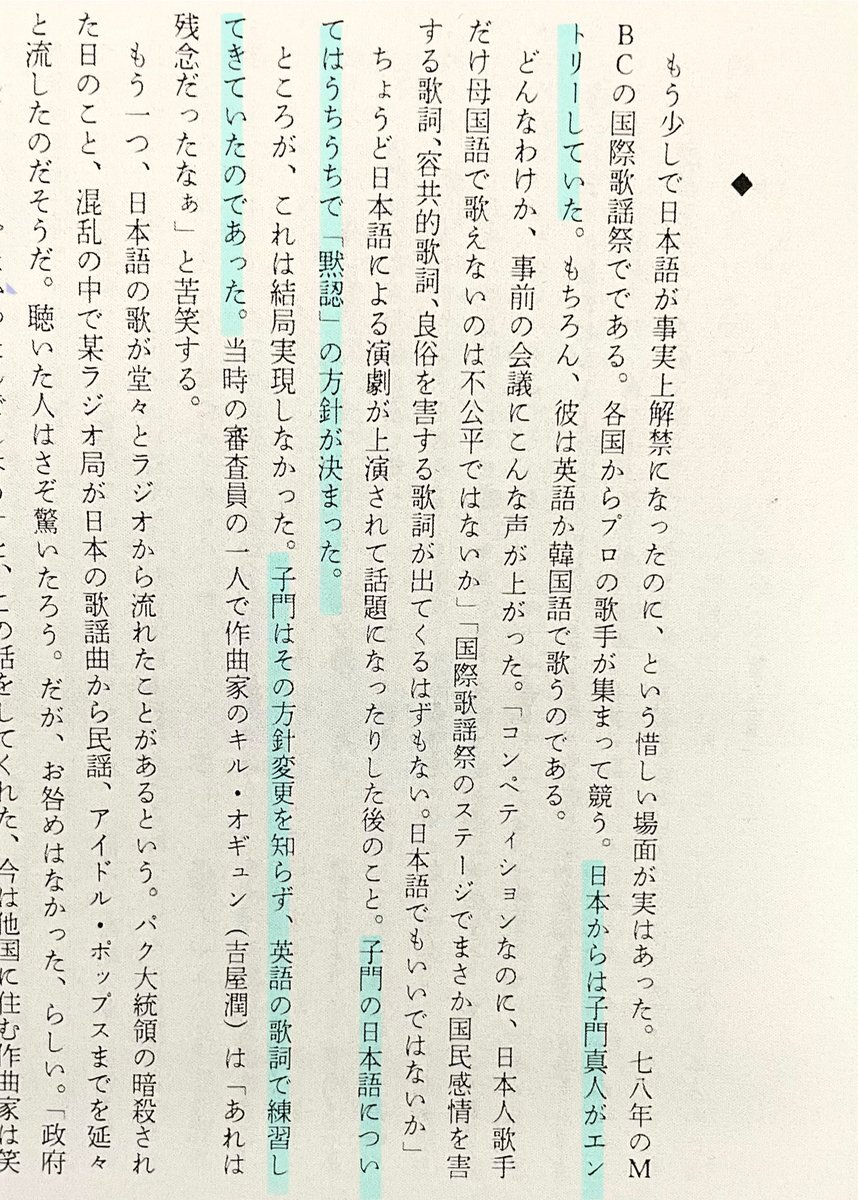 ◆
もう少しで日本語が事実上解禁になったのに、という惜しい場面が実はあった。七八年のM
BCの国際歌謡祭でである。各国からプロの歌手が集まって競う。日本からは子門真人がエン
トリーしていた。もちろん、彼は英語か韓国語で歌うのである。
どんなわけか、事前の会議にこんな声が上がった。「コンペティションなのに、日本人歌手
だけ母国語で歌えないのは不公平ではないか」「国際歌謡祭のステージでまさか国民感情を害
する歌詞、容共的歌詞、良俗を害する歌詞が出てくるはずもない。日本語でもいいではないか」
ちょうど日本語による演劇が上演されて話題になったりした後のこと。子門の日本語につい
てはうちうちで「黙認」の方針が決まった。
ところが、これは結局実現しなかった。子門はその方針変更を知らず、英語の歌詞で練習し
てきていたのであった。当時の審査員の一人で作曲家のキル・オギュン（吉屋潤）は「あれは
残念だったなぁ」と苦笑する。
もう一つ、日本語の歌が堂々とラジオから流れたことがあるという。パク大統領の暗殺され
た日のこと、混乱の中で某ラジオ局が日本の歌謡曲から民謡、アイドル・ポップスまでを延々
と流したのだそうだ。聴いた人はさぞ驚いたろう。だが、お咎めはなかった、らしい。「政府
と、この話をしてくれた、今は他国に住む作曲家は笑